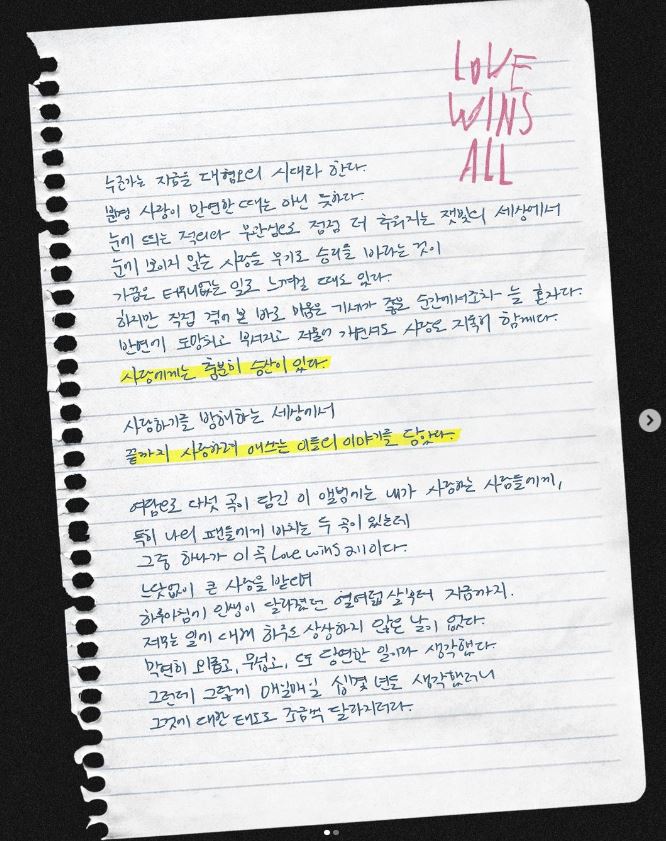 LOVE
WINS
ALL
누군가는 지금을 대혐오의 시대라 한다.
분명 사랑이 만연한 때는 아닌 듯하다.
눈에 띄는 적의와 무관심으로 점점 더 추워지는 잿빛의 세상에서
눈에 보이지 않는 사랑을 무기로 승리를 바라는 것이
가끔은 터무니없는 일로 느껴질 때도 있다.
하지만 직접 겪어 본 바로 미움은 기세가 좋을 순간에서조차 늘 혼자다.
반면에 도망치고 부서지고 저물어 가면서도 사랑은 지독히 함께다.
사랑에게는 충분히 승산이 있다.
사랑하기를 방해하는 세상에서
끝까지 사랑하려 애쓰는 이들의 이야기를 담았다.
여담으로 다섯 곡이 담긴 이 앨범에는 내가 사랑하는 사람들에게,
특히 나의 팬들에게 바치는 두 곡이 있는데
그중 하나가 이 곡 Love wins all이다.
느닷없이 큰 사랑을 받으며
하루아침에 인생이 달라졌던 열여덟 살부터 지금까지.
저무는 일에 대해 하루도 상상하지 않은 날이 없다.
막연히 외롭고, 무섭고, 또 당연한 일이라 생각했다.
그런데 그렇게 매일매일 십몇 년도 생각했더니
그것에 대한 태도도 조금씩 달라지더라.